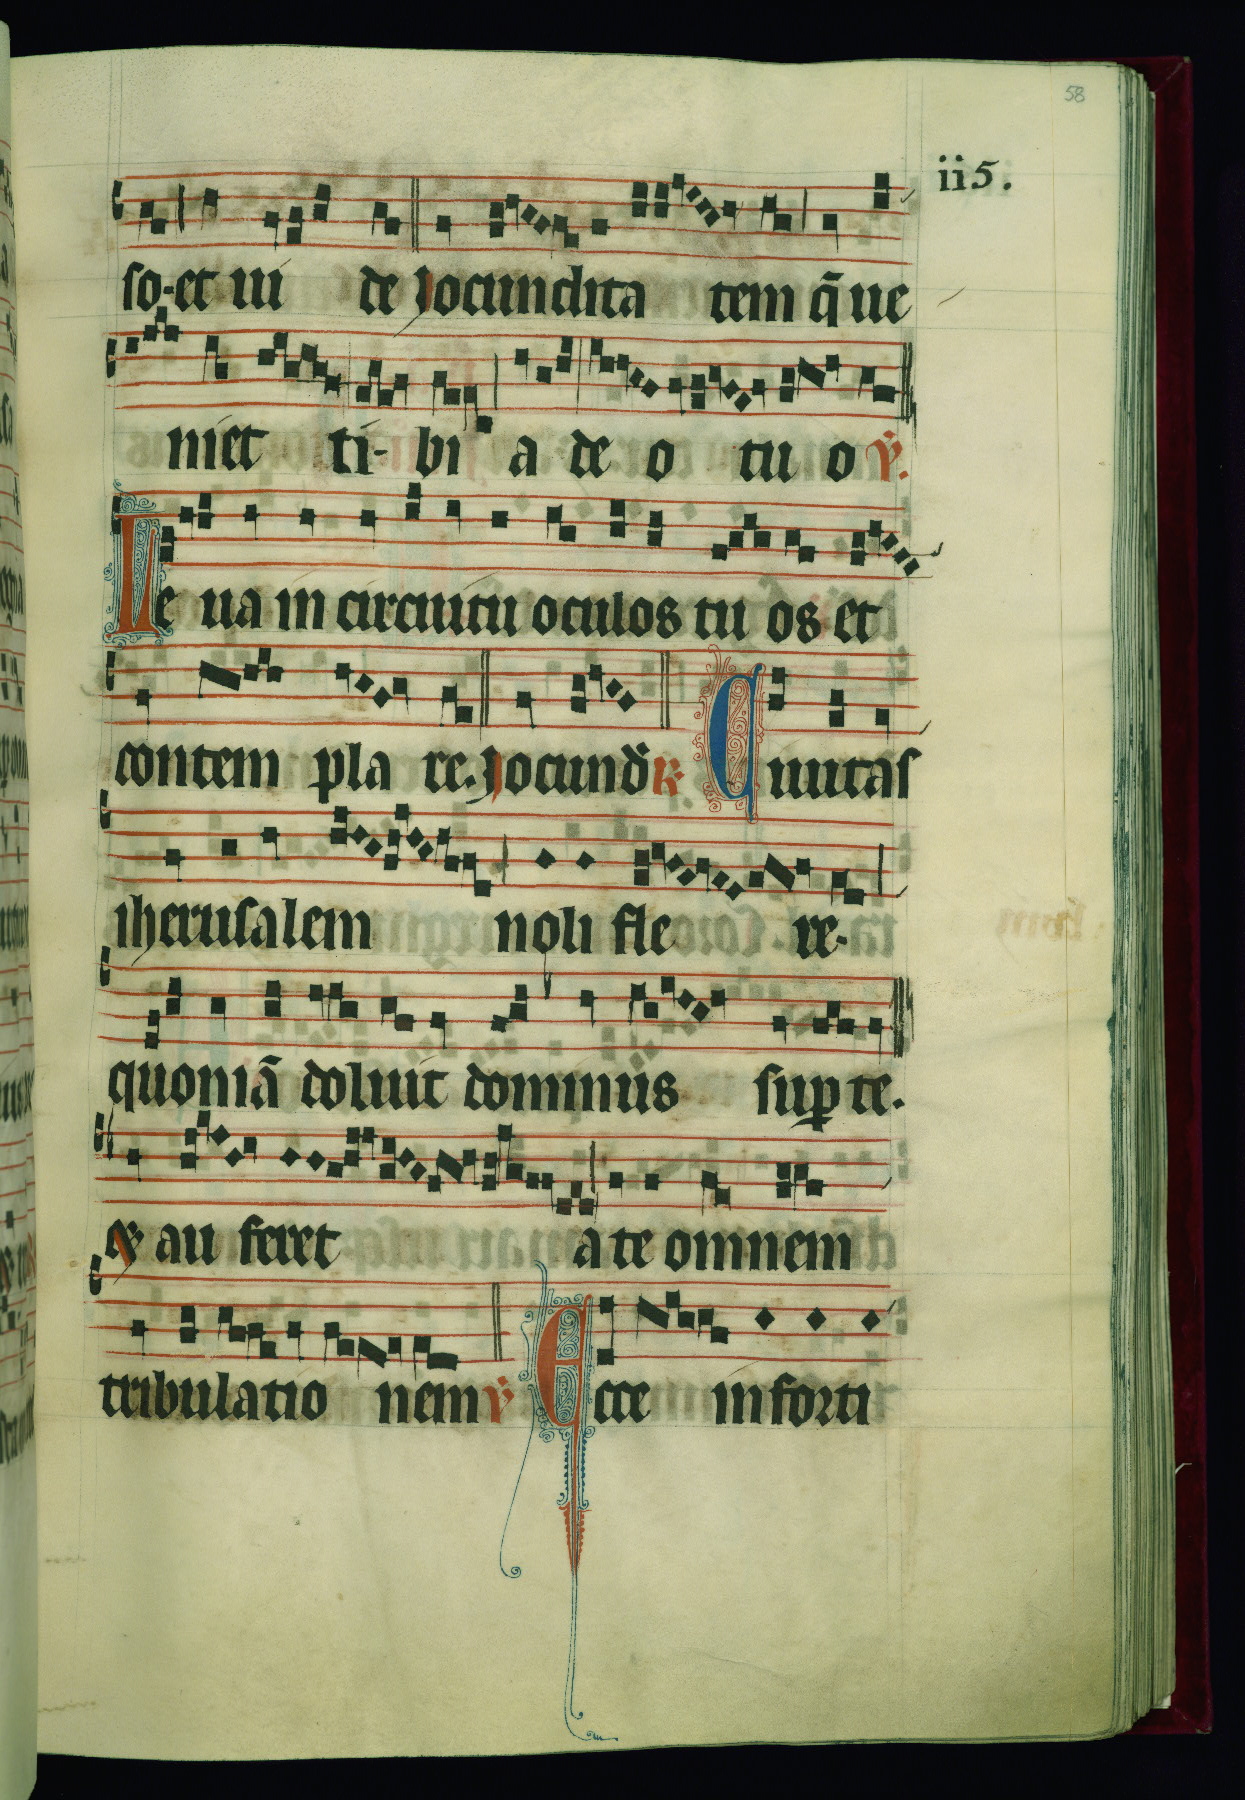 58
ii5.
so-et ui de jocundita tem q̄ ue
niet ti-bi a de o tu o ℣.
Le ua in circuitu oculos tu os et
contem pla re. jocund̄ ℟ Ciuitas
iherusalem noli fle re.
quoniā doluit dominus sup te.
& au feret a te omnem
tribulatio nem ℣ Ecce in forti